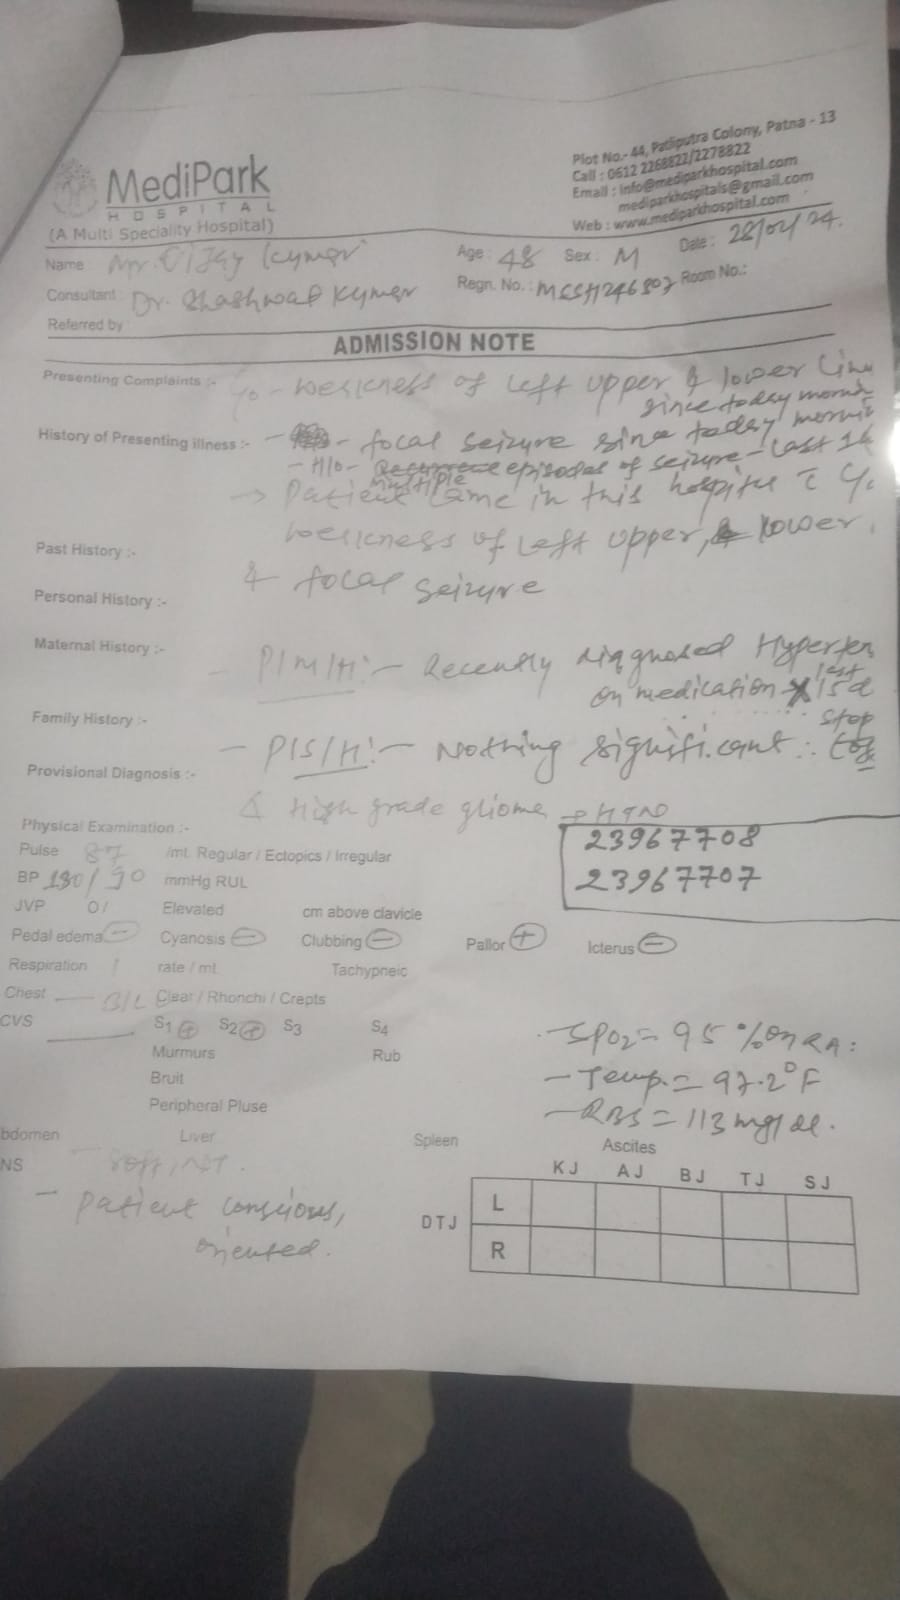 MediPark
HOSPITAL
(A Multi Speciality Hospital)
Plot No.- 44, Patliputra Colony, Patna - 13
Call : 0612 2268822/2278822
Email : info@mediparkhospital.com
mediparkhospitals@gmail.com
Web : www.mediparkhospital.com
Name : Mr. Vijay Kumar Age : 48 Sex : M Date : 28/02/24.
Consultant : Dr. Shashwat Kumar Regn. No. : Room No.:
Referred by
ADMISSION NOTE
Presenting Complaints :- C/o - weakness of Left upper & lower
since today
History of Presenting illness :- - focal seizure since today
- H/o - multiple episodes of seizure - last
→ Patient came in this hospital c̄ C/o
weakness of Left upper, & lower
Past History :-
& focal seizure
Personal History :-
Maternal History :-
- P/M/H :- Recently diagnosed
on medication X last 15d
Family History :-
stop
- P/S/H :- Nothing significant
Provisional Diagnosis :-
High grade glioma → HTN
Physical Examination :-
23967708
23967707
Pulse 87 /mt. Regular / Ectopics / Irregular
BP /90 mmHg RUL
JVP Elevated cm above clavicle
Pedal edema - Cyanosis - Clubbing - Pallor + Icterus -
Respiration rate / mt. Tachypneic
Chest B/L Clear / Rhonchi / Crepts
CVS S1 + S2 + S3 S4
Murmurs Rub
Bruit
Peripheral Pluse
- SPO2 = 95 % on RA :
- Temp. = 97.2°F
- RBS = 113 mg/dl.
bdomen Liver Spleen Ascites
NS Soft, NT.
- Patient conscious,
oriented.
KJ AJ BJ TJ SJ
DTJ
L
R